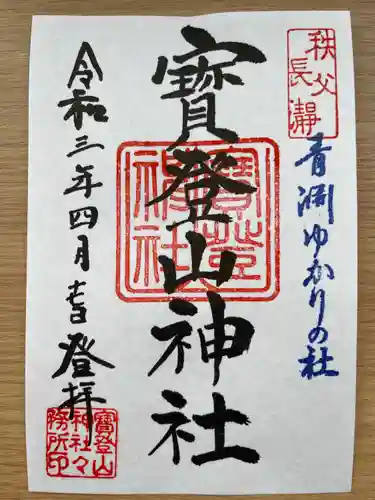 秩父
長瀞
青淵ゆかりの社
寳登山神社
寳登山
神社
令和三年四月十一日登拝
寳登山
神社々
務所印